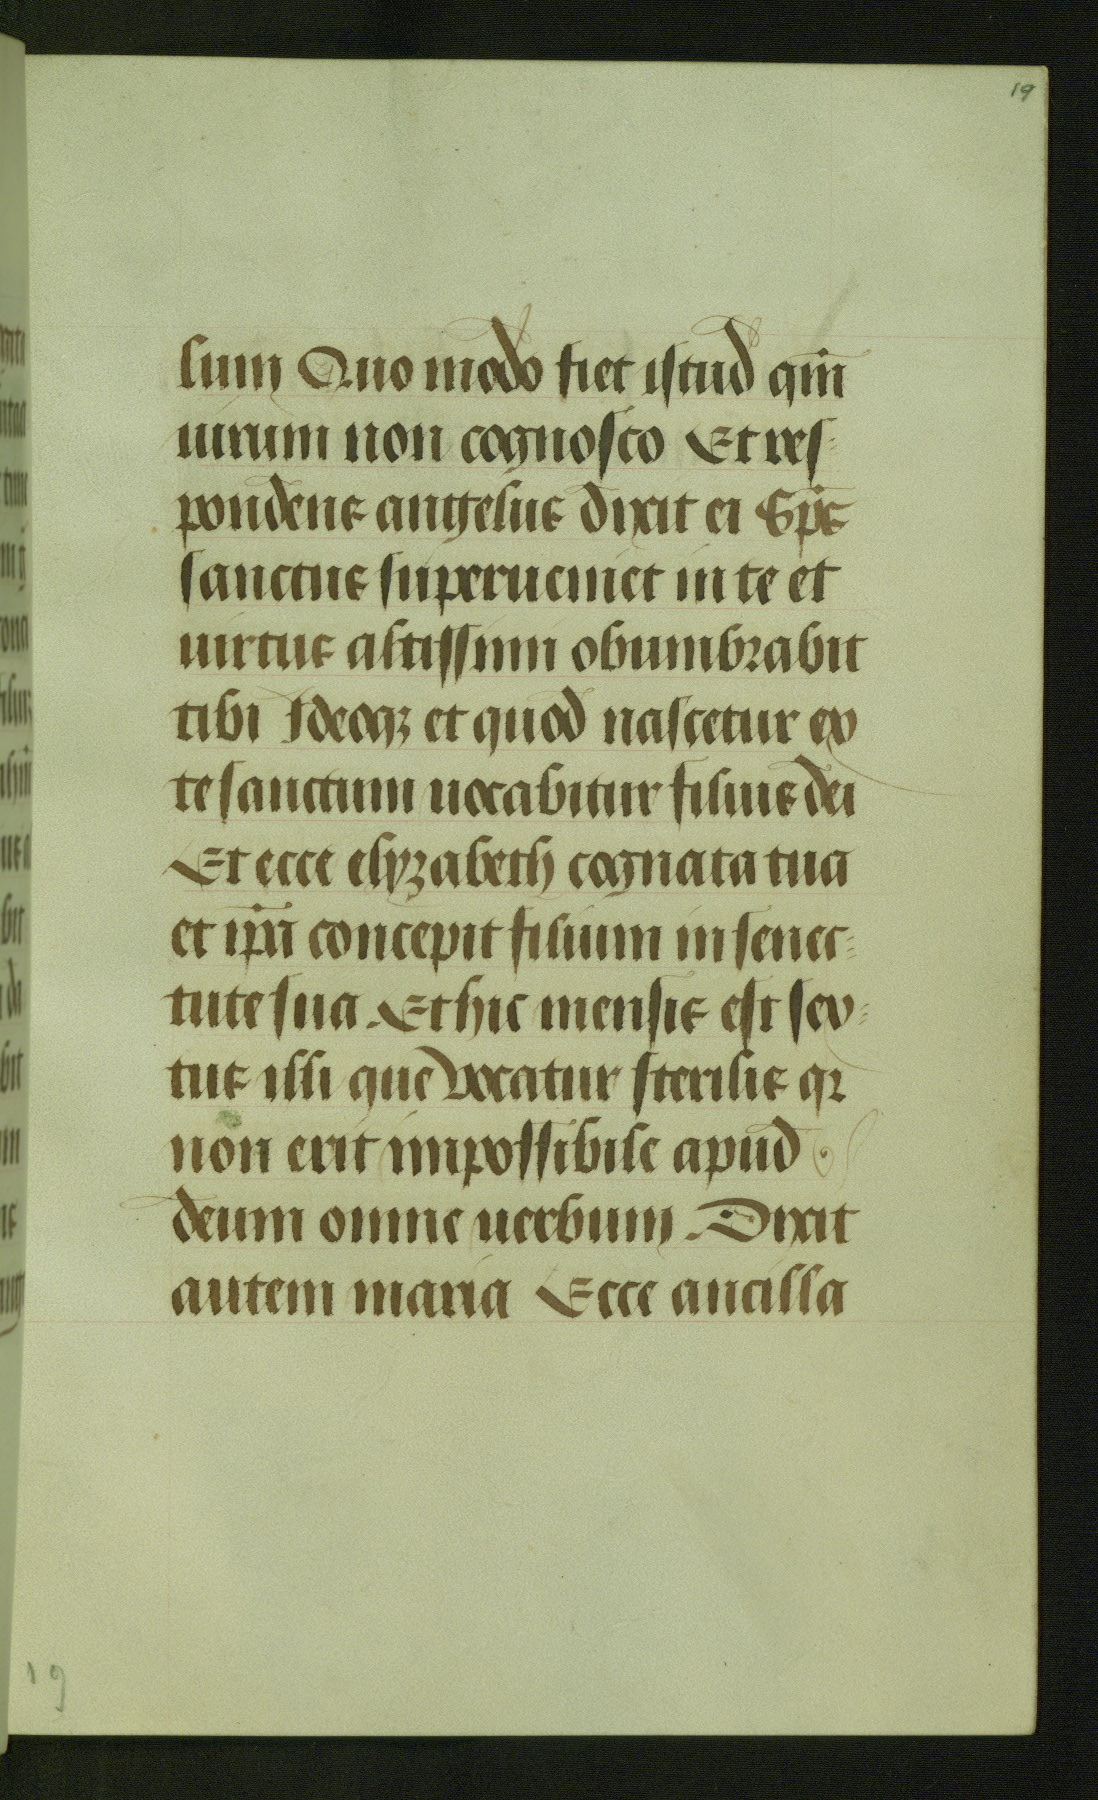 19
lum Quo modo fiet istud qm̄
uirum non cognosco Et res-
pondens angelus dixit ei Sp̄s
sanctus superueniet in te et
uirtus altissimi obumbrabit
tibi Ideoqꝫ et quod nascetur ex
te sanctum uocabitur filius dei
Et ecce elyzabeth cognata tua
et ip̄a concepit filium in senec-
tute sua. Et hic mensis est sex-
tus illi que vocatur sterilis qꝛ
non erit impossibile apud
deum omne uerbum. Dixit
autem maria Ecce ancilla
19